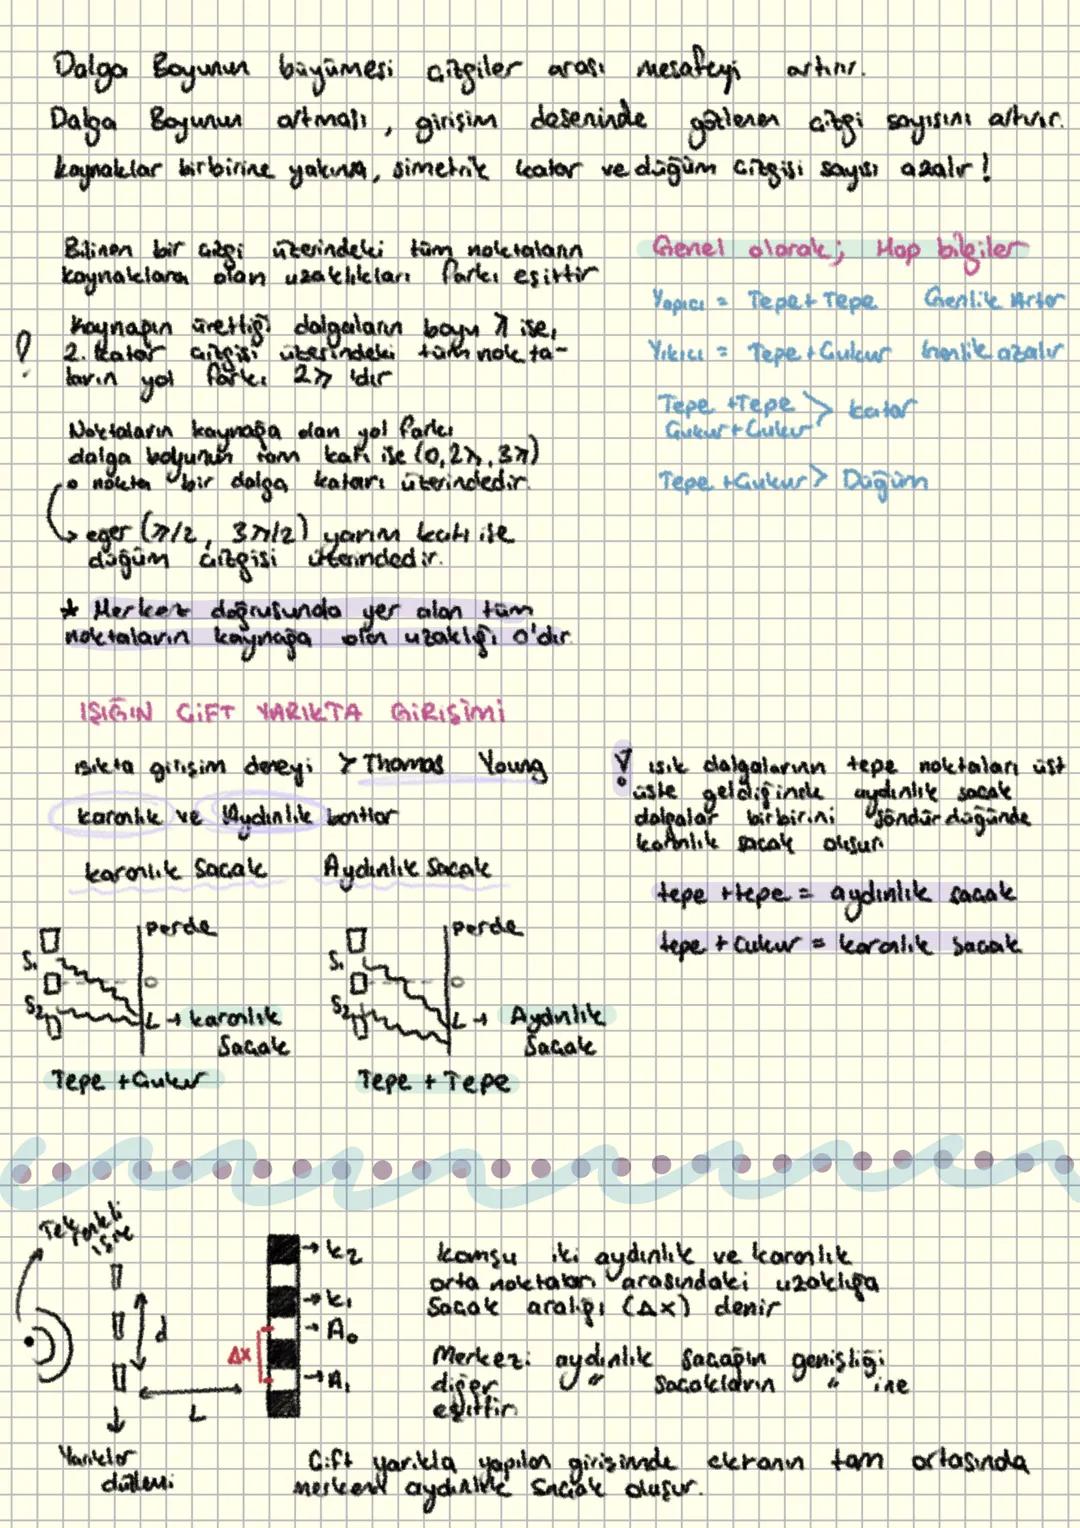 Dalga Boyunun büyümesi çizgiler arası mesafeyi artırır.
Dalga Boyunun artması, girişim deseninde gözlenen çizgi sayısını artırır.
kaynaklar birbirine yakınsa, simetrik katar ve düğüm çizgisi sayısı azalır!
Bilinen bir çizgi üzerindeki tüm noktaların
kaynaklara olan uzaklıkları farkı eşittir
Kaynağın ürettiği dalgaların boyu λ ise,
2. katar çizgisi üzerindeki tüm nokta-
ların yol farkı 2λ 'dır
Noktaların kaynağa olan yol farkı
dalga boyunun tam katı ise (0, 2λ, 3λ)
o nokta bir dalga katarı üzerindedir.
eğer (λ/2, 3λ/2) yarım katı ise
düğüm çizgisi üzerindedir.
* Merkez doğrusunda yer alan tüm
noktaların kaynağa olan uzaklığı 0'dır.
Genel olarak; Hap bilgiler
Yapıcı = Tepe + Tepe Genlik Artar
Yıkıcı = Tepe + Çukur Genlik azalır
Tepe + Tepe > katar
Çukur + Çukur
Tepe + Çukur > Düğüm
IŞIĞIN ÇİFT YARIKTA GİRİŞİMİ
ışıkta girişim deneyi > Thomas Young
karanlık ve Aydınlık bantlar
karanlık Saçak Aydınlık Saçak
! ışık dalgalarının tepe noktaları üst
üste geldiğinde aydınlık saçak
dalgalar birbirini söndürdüğünde
karanlık saçak oluşur
tepe + tepe = aydınlık saçak
tepe + çukur = karanlık saçak
perde
S₁
O
S₂
L → karanlık
Saçak
Tepe + Çukur
perde
S₁
O
S₂
L → Aydınlık
Saçak
Tepe + Tepe
Tek renkli
ışık
d
L
Yarıklar
düzlemi
Δx
→ k₂
→ k₁
→ A₀
→ A₁
komşu iki aydınlık ve karanlık
orta noktaları arasındaki uzaklığa
Saçak aralığı (Δx) denir
Merkezi aydınlık saçağın genişliği
diğer " saçakların " ine
eşittir
Çift yarıkla yapılan girişimde ekranın tam ortasında
merkezi aydınlık saçak oluşur.